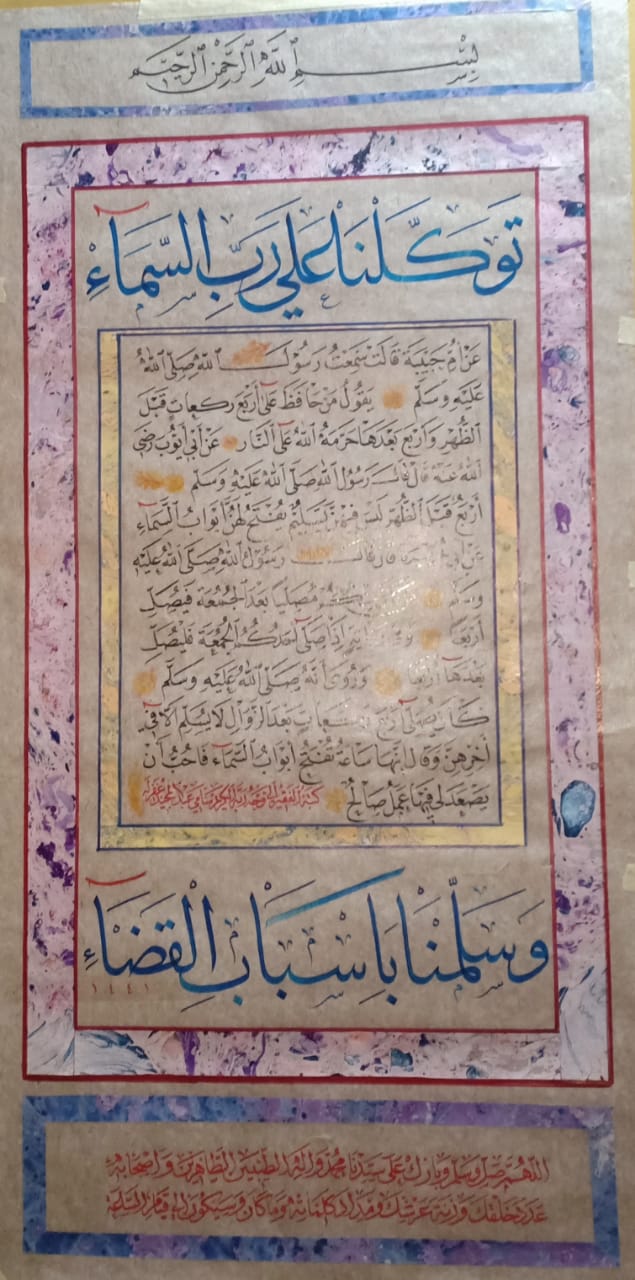 بِسْمِ اللهِ الرَّحْمٰنِ الرَّحِيْمِ
تَوَكَّلْنَا عَلٰى رَبِّ السَّمَاءِ
عَنْ أُمِّ حَبِيْبَةَ قَالَتْ سَمِعْتُ رَسُوْلَ اللهِ صَلَّى اللهُ
عَلَيْهِ وَسَلَّمَ يَقُوْلُ مَنْ حَافَظَ عَلٰى أَرْبَعِ رَكَعَاتٍ قَبْلَ
الظُّهْرِ وَأَرْبَعٍ بَعْدَهَا حَرَّمَهُ اللهُ عَلَى النَّارِ عَنْ أَبِيْ أَيُّوْبَ رَضِيَ
اللهُ عَنْهُ قَالَ قَالَ رَسُوْلُ اللهِ صَلَّى اللهُ عَلَيْهِ وَسَلَّمَ
أَرْبَعٌ قَبْلَ الظُّهْرِ لَيْسَ فِيْهِنَّ تَسْلِيْمٌ تُفْتَحُ لَهُنَّ أَبْوَابُ السَّمَاءِ
عَنْ أَبِيْ قَالَ قَالَ رَسُوْلُ اللهِ صَلَّى اللهُ عَلَيْهِ
مُصَلِّيًا بَعْدَ الْجُمُعَةِ فَلْيُصَلِّ
أَرْبَعًا إِذَا صَلَّى أَحَدُكُمُ الْجُمُعَةَ فَلْيُصَلِّ
بَعْدَهَا أَرْبَعًا وَرُوِيَ أَنَّهُ صَلَّى اللهُ عَلَيْهِ وَسَلَّمَ
كَانَ يُصَلِّيْ أَرْبَعَ رَكَعَاتٍ بَعْدَ الزَّوَالِ لَا يُسَلِّمُ إِلَّا فِيْ
آخِرِهِنَّ وَقَالَ إِنَّهَا سَاعَةٌ تُفْتَحُ أَبْوَابُ السَّمَاءِ فَأُحِبُّ أَنْ
يَصْعَدَ لِيْ فِيْهَا عَمَلٌ صَالِحٌ كتبه الفقير
وَسَلَّمْنَا بِأَسْبَابِ الْقَضَاءِ
١٤٤١
اللهم صل وسلم وبارك على سيدنا محمد وآله الطيبين الطاهرين وأصحابه
عدد خلقك وزنة عرشك ومداد كلماته وما كان وسيكون الى